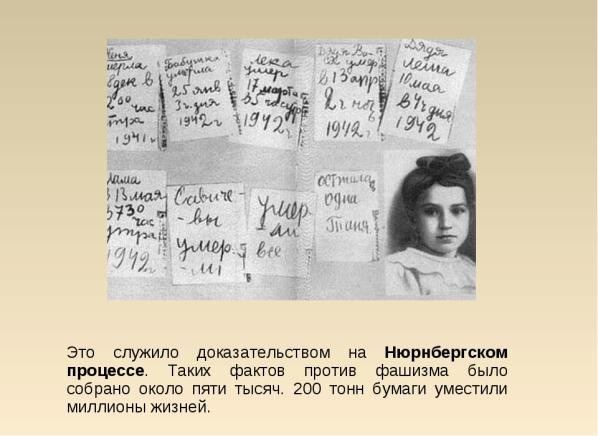 Женя
мерла
дек в
00 час
тра
1941 г
Бабушка
умерла
25 янв
3 ч. дня
1942 г
Лека
умер
17 марта
в 5 час утр
1942 г
Дядя Ва-
ся умер
в 13 апр
2 ч ноч
1942 г
Дядя
Леша
10 мая
в 4 ч дня
1942
Мама
в 13 мая
в 730
час
утра
1942
Савиче-
-вы
умер-
-ли
умер
ли
все
осталас
одна
Таня
Это служило доказательством на Нюрнбергском
процессе. Таких фактов против фашизма было
собрано около пяти тысяч. 200 тонн бумаги уместили
миллионы жизней.